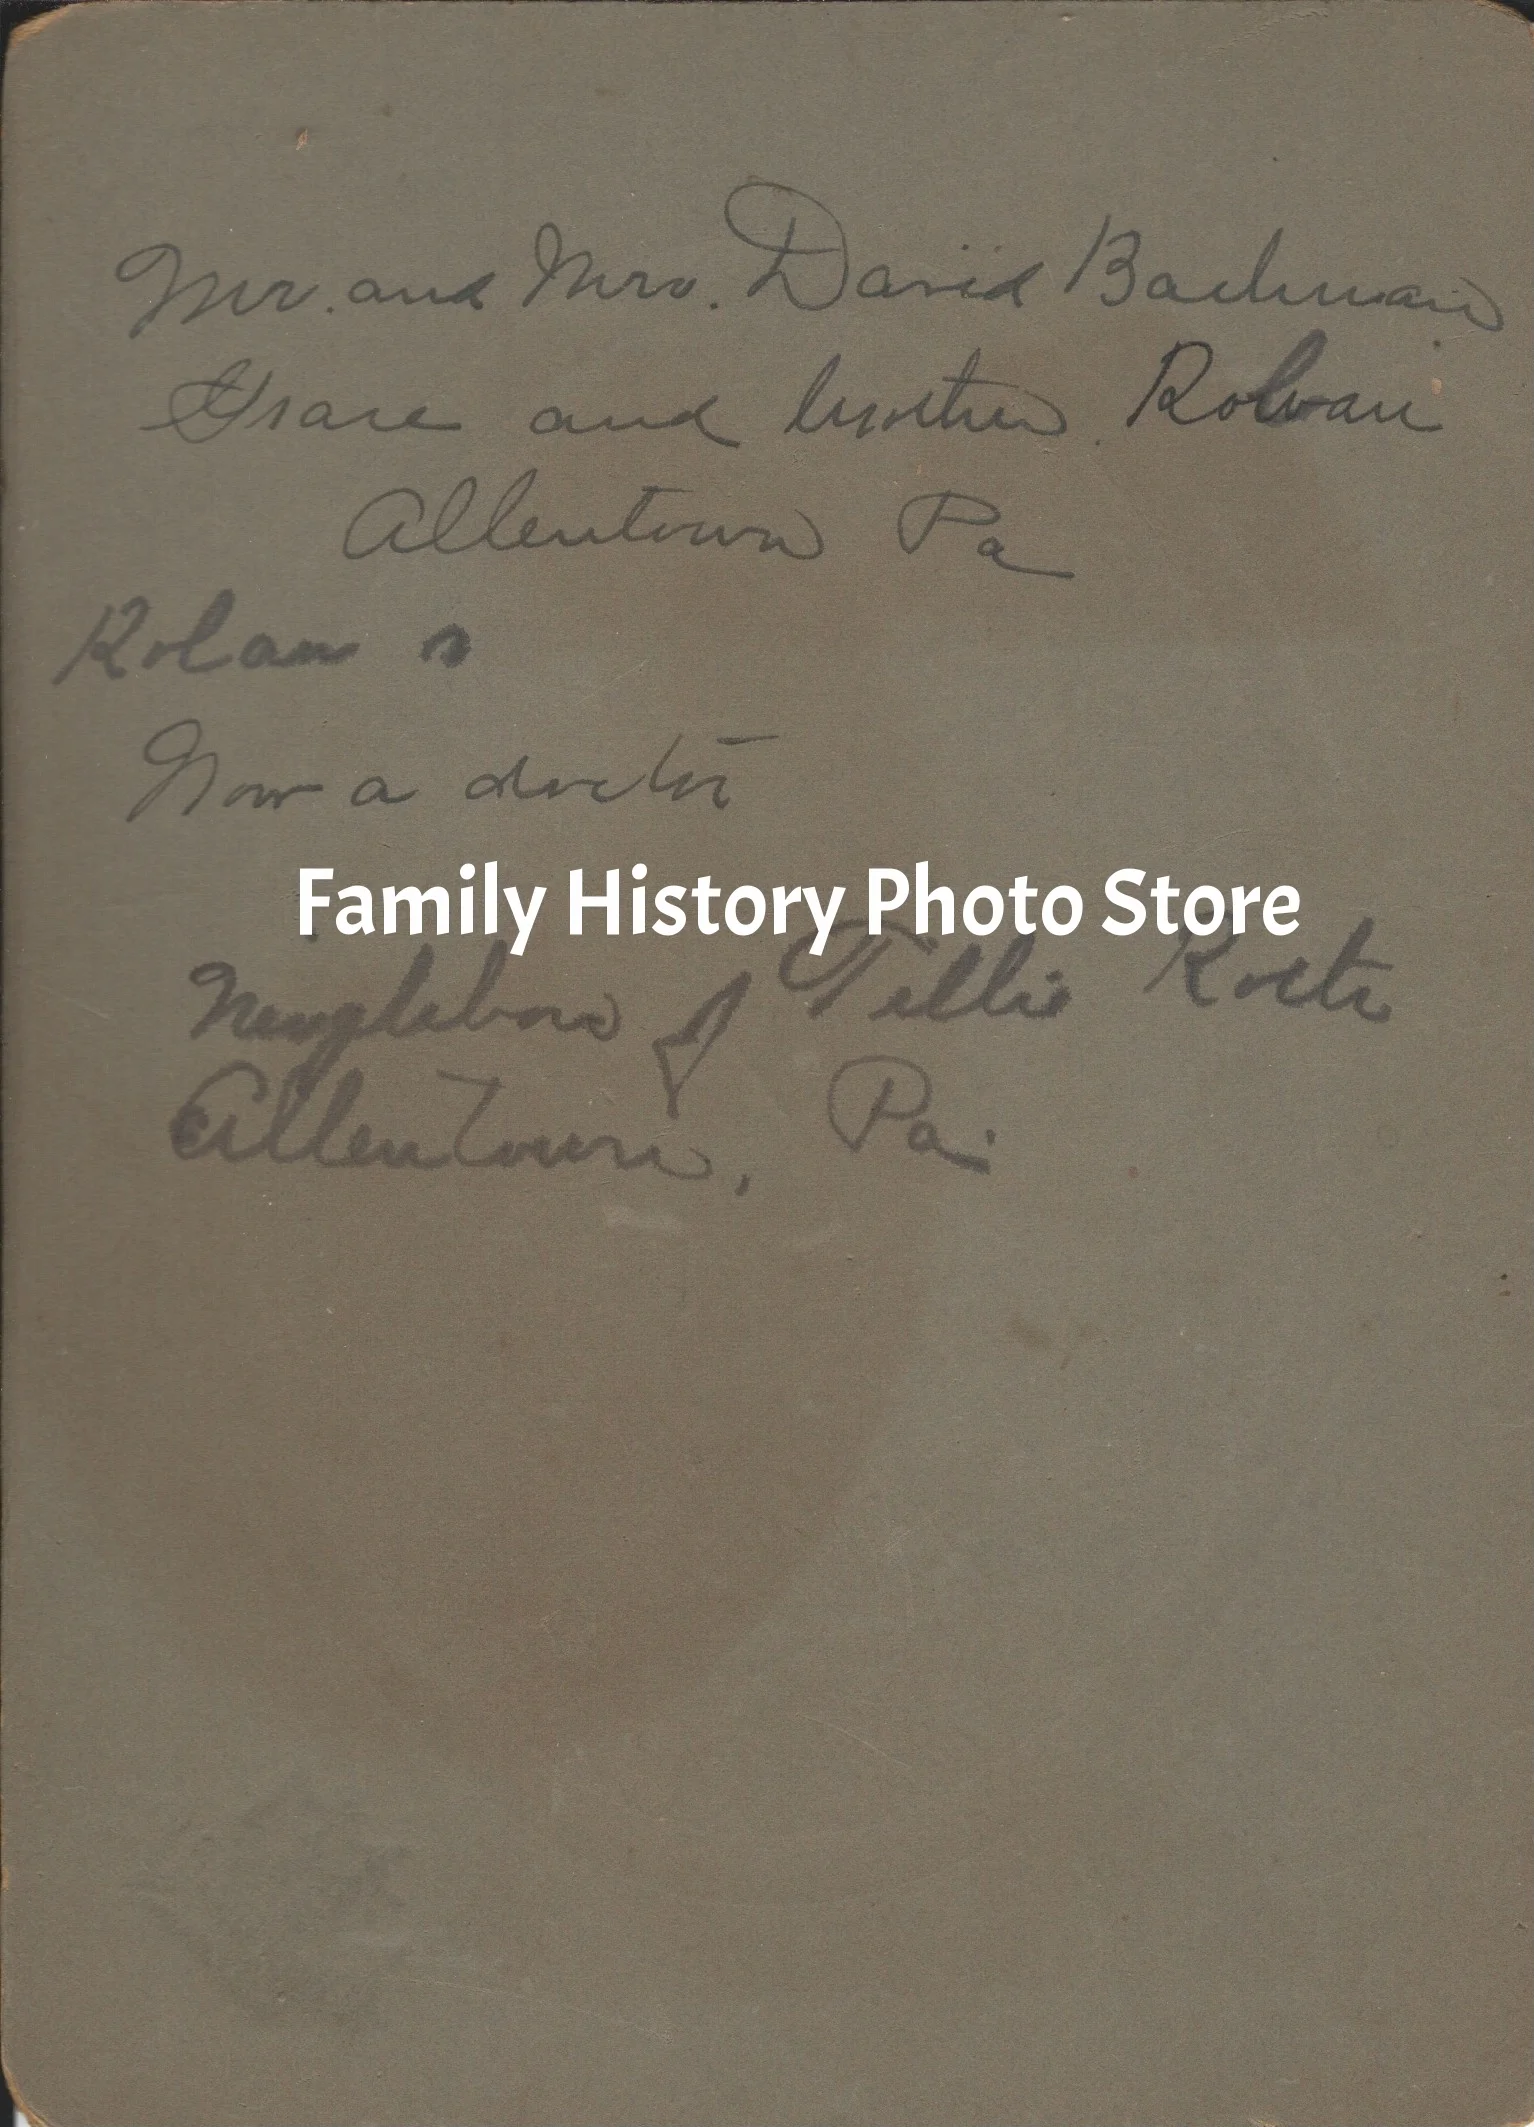 Mr. and Mrs. David Bachman
Grace and brother Rolan
Allentown Pa
Rolan
Now a doctor
Family History Photo Store
Neighbors of Tillie
Allentown, Pa.